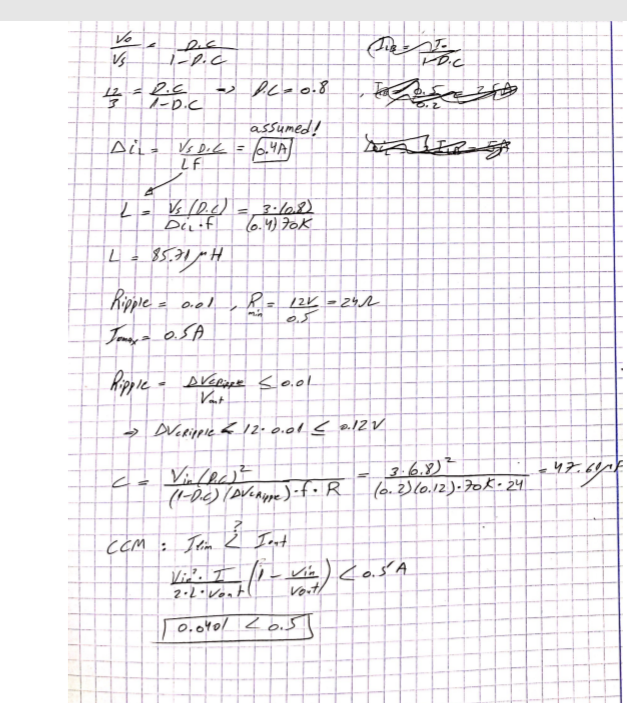 Vo/Vs = D.C/1-D.C
ILB = Io/1-D.C
12/3 = D.C/1-D.C -> D.C = 0.8 , = 0.5/0.2 = 2.5A
assumed!
ΔiL = Vs D.C/Lf = 0.4A
L = Vs (D.C)/ΔiL·f = 3·(0.8)/(0.4)70K
L = 85.71 μH
Ripple = 0.01 , Rmin = 12V/0.5 = 24Ω
Iomax = 0.5A
Ripple = ΔVcRipple/Vout ≤ 0.01
→ ΔVcRipple ≤ 12·0.01 ≤ 0.12V
C = Vin(D.C)²/(1-D.C)(ΔVcRipple)·f·R = 3·(0.8)²/(0.2)(0.12)·70K·24 = 47.61μF
?
CCM : Ilim < Iout
Vin²·T/2·L·Vout (1 - Vin/Vout) < 0.5A
0.0401 < 0.5